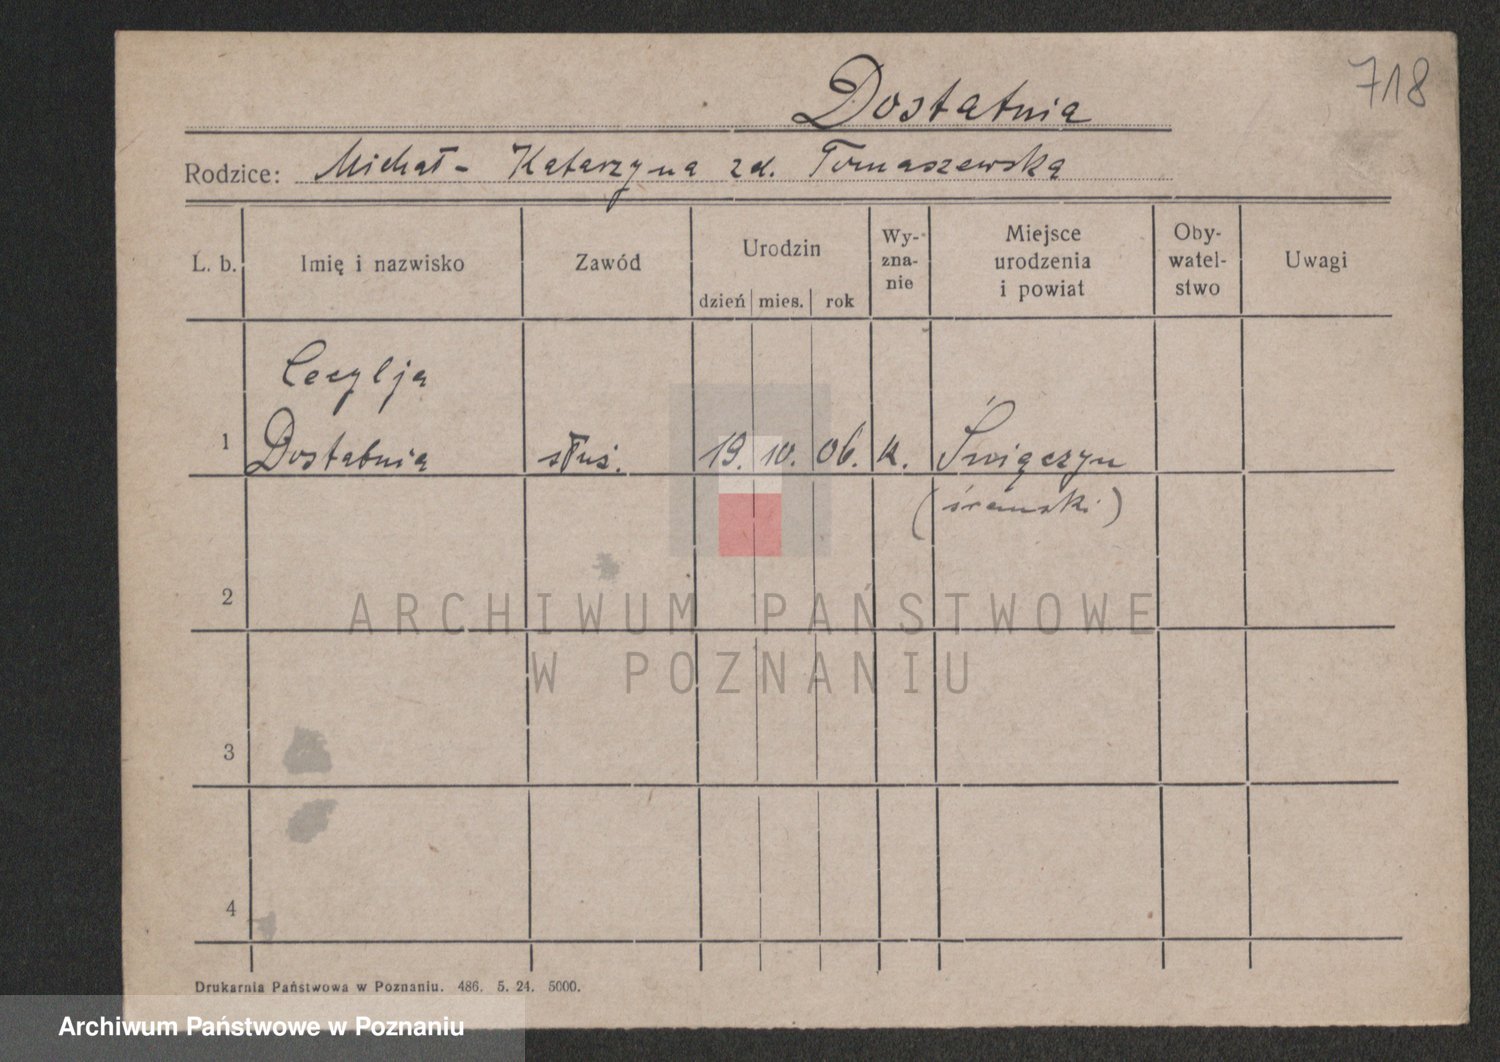 718
Dostatnia
Rodzice: Michał - Katarzyna zd. Tomaszewska
L. b.
Imię i nazwisko
Zawód
Urodzin
dzień mies. rok
Wy-
zna-
nie
Miejsce
urodzenia
i powiat
Oby-
watel-
stwo
Uwagi
Cecylja
1 Dostatnia służ. 19. 10. 06. k. Święczyn
(śremski)
2
ARCHIWUM PAŃSTWOWE
W POZNANIU
3
4
Drukarnia Państwowa w Poznaniu. 486. 5. 24. 5000.
Archiwum Państwowe w Poznaniu